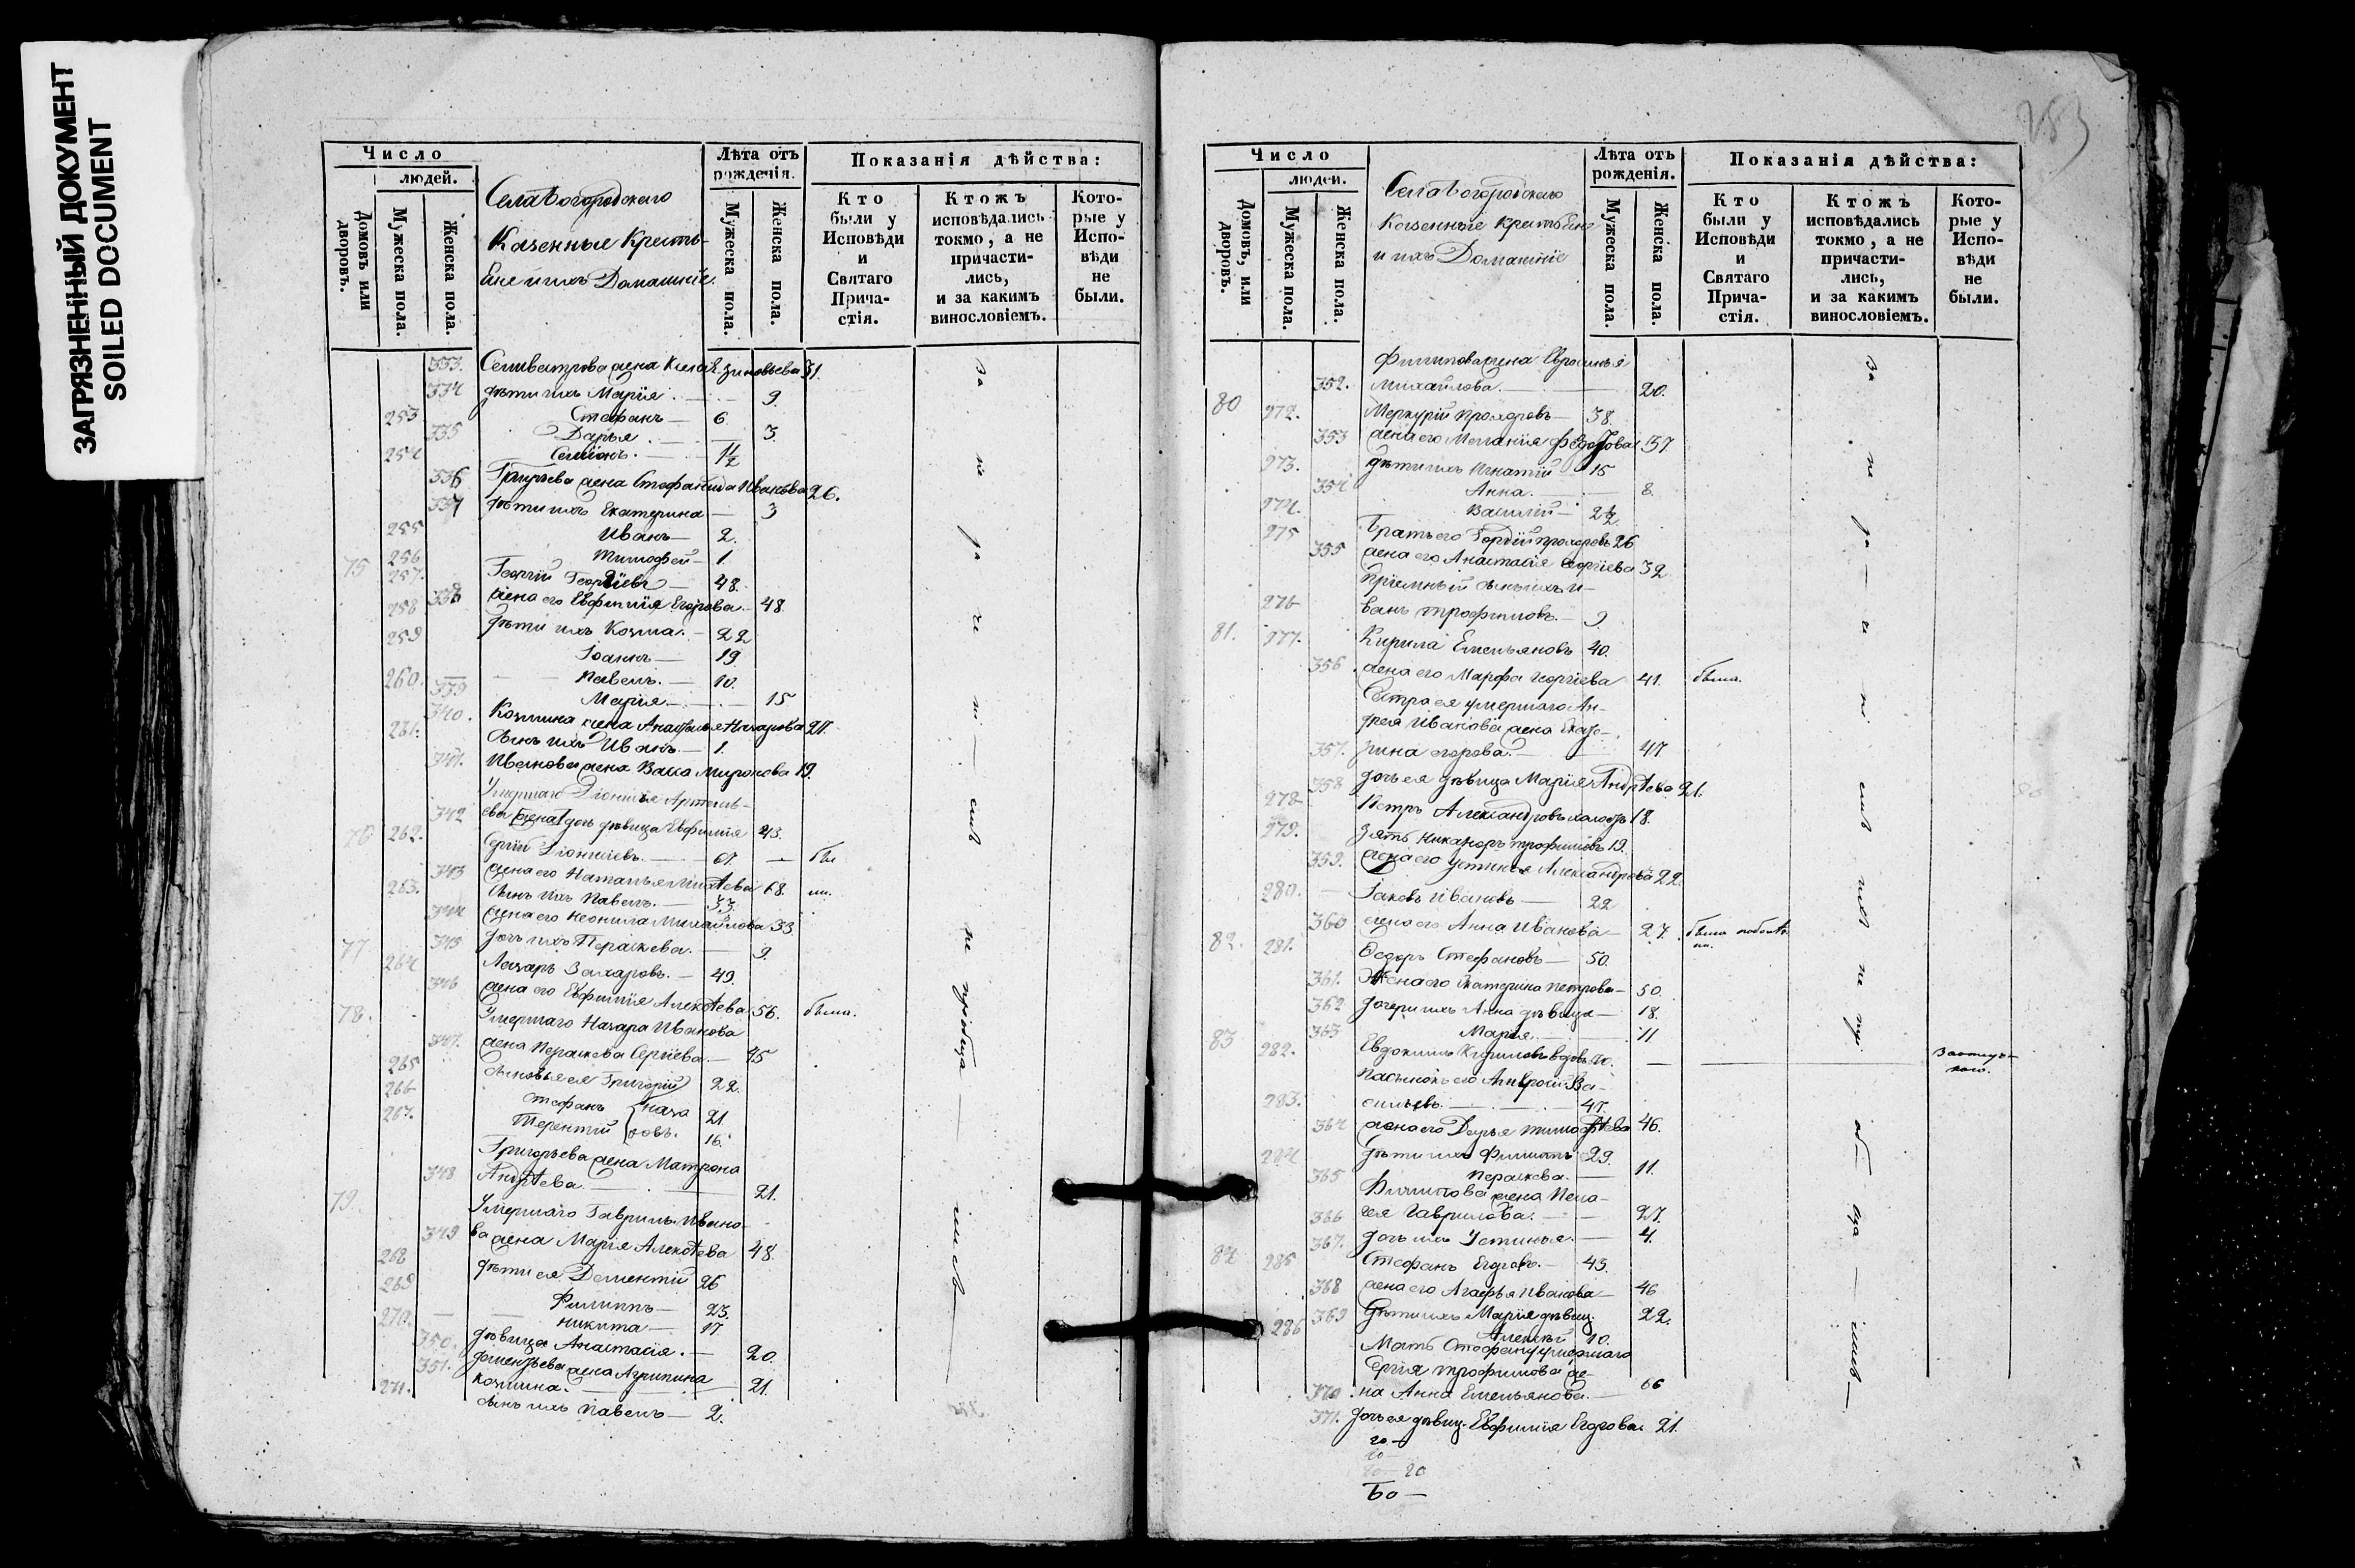 ЗАГРЯЗНЕННЫЙ ДОКУМЕНТ
SOILED DOCUMENT
Число
людей.
Домовъ или дворовъ.
Мужеска пола.
Женска пола.
Села Богородскаго
Казенные Кресть-
яне и ихъ Домашніе.
Лѣта отъ рожденія.
Мужеска пола.
Женска пола.
Показанія дѣйства:
Кто были у Исповѣди и Святаго Прича-стія.
Ктожъ исповѣдались токмо, а не причасти-лись, и за какимъ винословіемъ.
Кото-рые у Испо-вѣди не были.
333. Селиверстова жена Зиновьева 31.
334 Дѣти ихъ Марія. 9.
253 Стефанъ 6
335 Дарья. 3
254 Семіонъ. 1 1/2
336 Григорьева жена Стефанида Иванова 26.
337 Дѣти ихъ Екатерина 3
255 Иванъ 2.
256 Тимофей 1.
75 257. Георгій Георгіевъ 48.
338 жена его Евфимія Егорова. 48.
258 Дѣти ихъ Козма. 22
259 Іоаннъ 19
260. Павелъ. 10.
339 Марія 15
340. Козмина жена Назарова 21.
261. Сынъ ихъ Иванъ. 1.
341. Иванова жена Васса Миронова 19.
Умершаго Діонисія Артемь-
342 ева дочь дѣвица Евфимія 43.
76 262. Сергій Діонисіевъ. 67. былъ
343 жена его Наталья 68.
263. Сынъ ихъ Павелъ. 33
344 жена его Неонила Михайлова 33
345 дочь ихъ Параскева. 9.
77 264 Лазарь Захаровъ. 49.
346 жена его Евфимія Алексѣева 56. была.
78. Умершаго Назара Иванова
347. жена Параскева Сергіева. 45
265 Сыновья ея Григорій 22.
266 Стефанъ Наза 21
267. Терентій ровъ. 16.
Григорьева жена Матрона
348 Андрѣева 21.
79. Умершаго Гаврилы Ивано-
349 ва жена Марія Алексѣева 48.
268 Дѣти ея Дементій 26
269 Филиппъ 23.
270. Никита 17
350. дѣвица Анастасія. 20.
351. Дементьева жена Агрипина
Козмина. 21.
271. Сынъ ихъ Павелъ 2.
За не ра че ні емъ не пріобща лись
253
Число
людей.
Домовъ, или дворовъ.
Мужеска пола.
Женска пола.
Села Богородскаго
Казенные Крестьяне
и ихъ Домашніе
Лѣта отъ рожденія.
Мужеска пола.
Женска пола.
Показанія дѣйства:
Кто были у Исповѣди и Святаго Прича-стія.
Ктожъ исповѣдались токмо, а не причасти-лись, и за какимъ винословіемъ.
Кото-рые у Испо-вѣди не были.
Филипова жена Евросинья
352. Михайлова. 20.
80 272. Меркурій Прохоровъ 38.
353 жена его Меланія Федорова 37.
273. Дѣти ихъ Игнатій 15
354 Анна. 8.
274. Василій 2 1/2
275 Братъ его Гордій Прохоровъ 26
355 жена его Анастасія Георгіева 32
Пріемный сынъ ихъ И-
276 ванъ Трофимовъ. 9
81. 277. Кирила Емельяновъ 40.
356 жена его Марфа Георгіева 41. была.
Сестра ея умершаго Ан-
дрея Иванова жена Екате-
357. рина Егорова. 47
358 дочь ея дѣвица Марія Андрѣева 21.
278 Петръ Александровъ холостъ 18.
279. Зять Никаноръ Трофимовъ 19.
359. жена его Устинья Александрова 22.
280. Іаковъ Ивановъ 22
360 жена его Анна Иванова 27.
82. 281. Ѳедоръ Стефановъ 50.
361. Жена его Екатерина Петрова 50.
362 Дочери ихъ Анна дѣвица 18.
363 Марія. 11
83 282. Евдокимъ Кириловъ вдовъ 70.
Пасынокъ его Амвросій Ва-
283. сильевъ. 47.
364 жена его Дарья Тимофѣева 46.
284 Дѣти ихъ Филиппъ 29.
365 Параскева. 11.
Филипова жена Пела-
366 гея Гаврилова. 27.
367. дочь ихъ Устинья. 4.
84 285 Стефанъ Егоровъ. 45.
368 жена его Агафья Иванова 46
369 Дѣти ихъ Марія дѣвиц. 22.
286 Алексѣй 10.
Мать Стефану умершаго
Сергія Трофимова же-
370. на Анна Емельянова. 66
371. дочь ея дѣвиц. Евфимія Егорова. 21.
За не ра че ні емъ не прі об ща лись
20